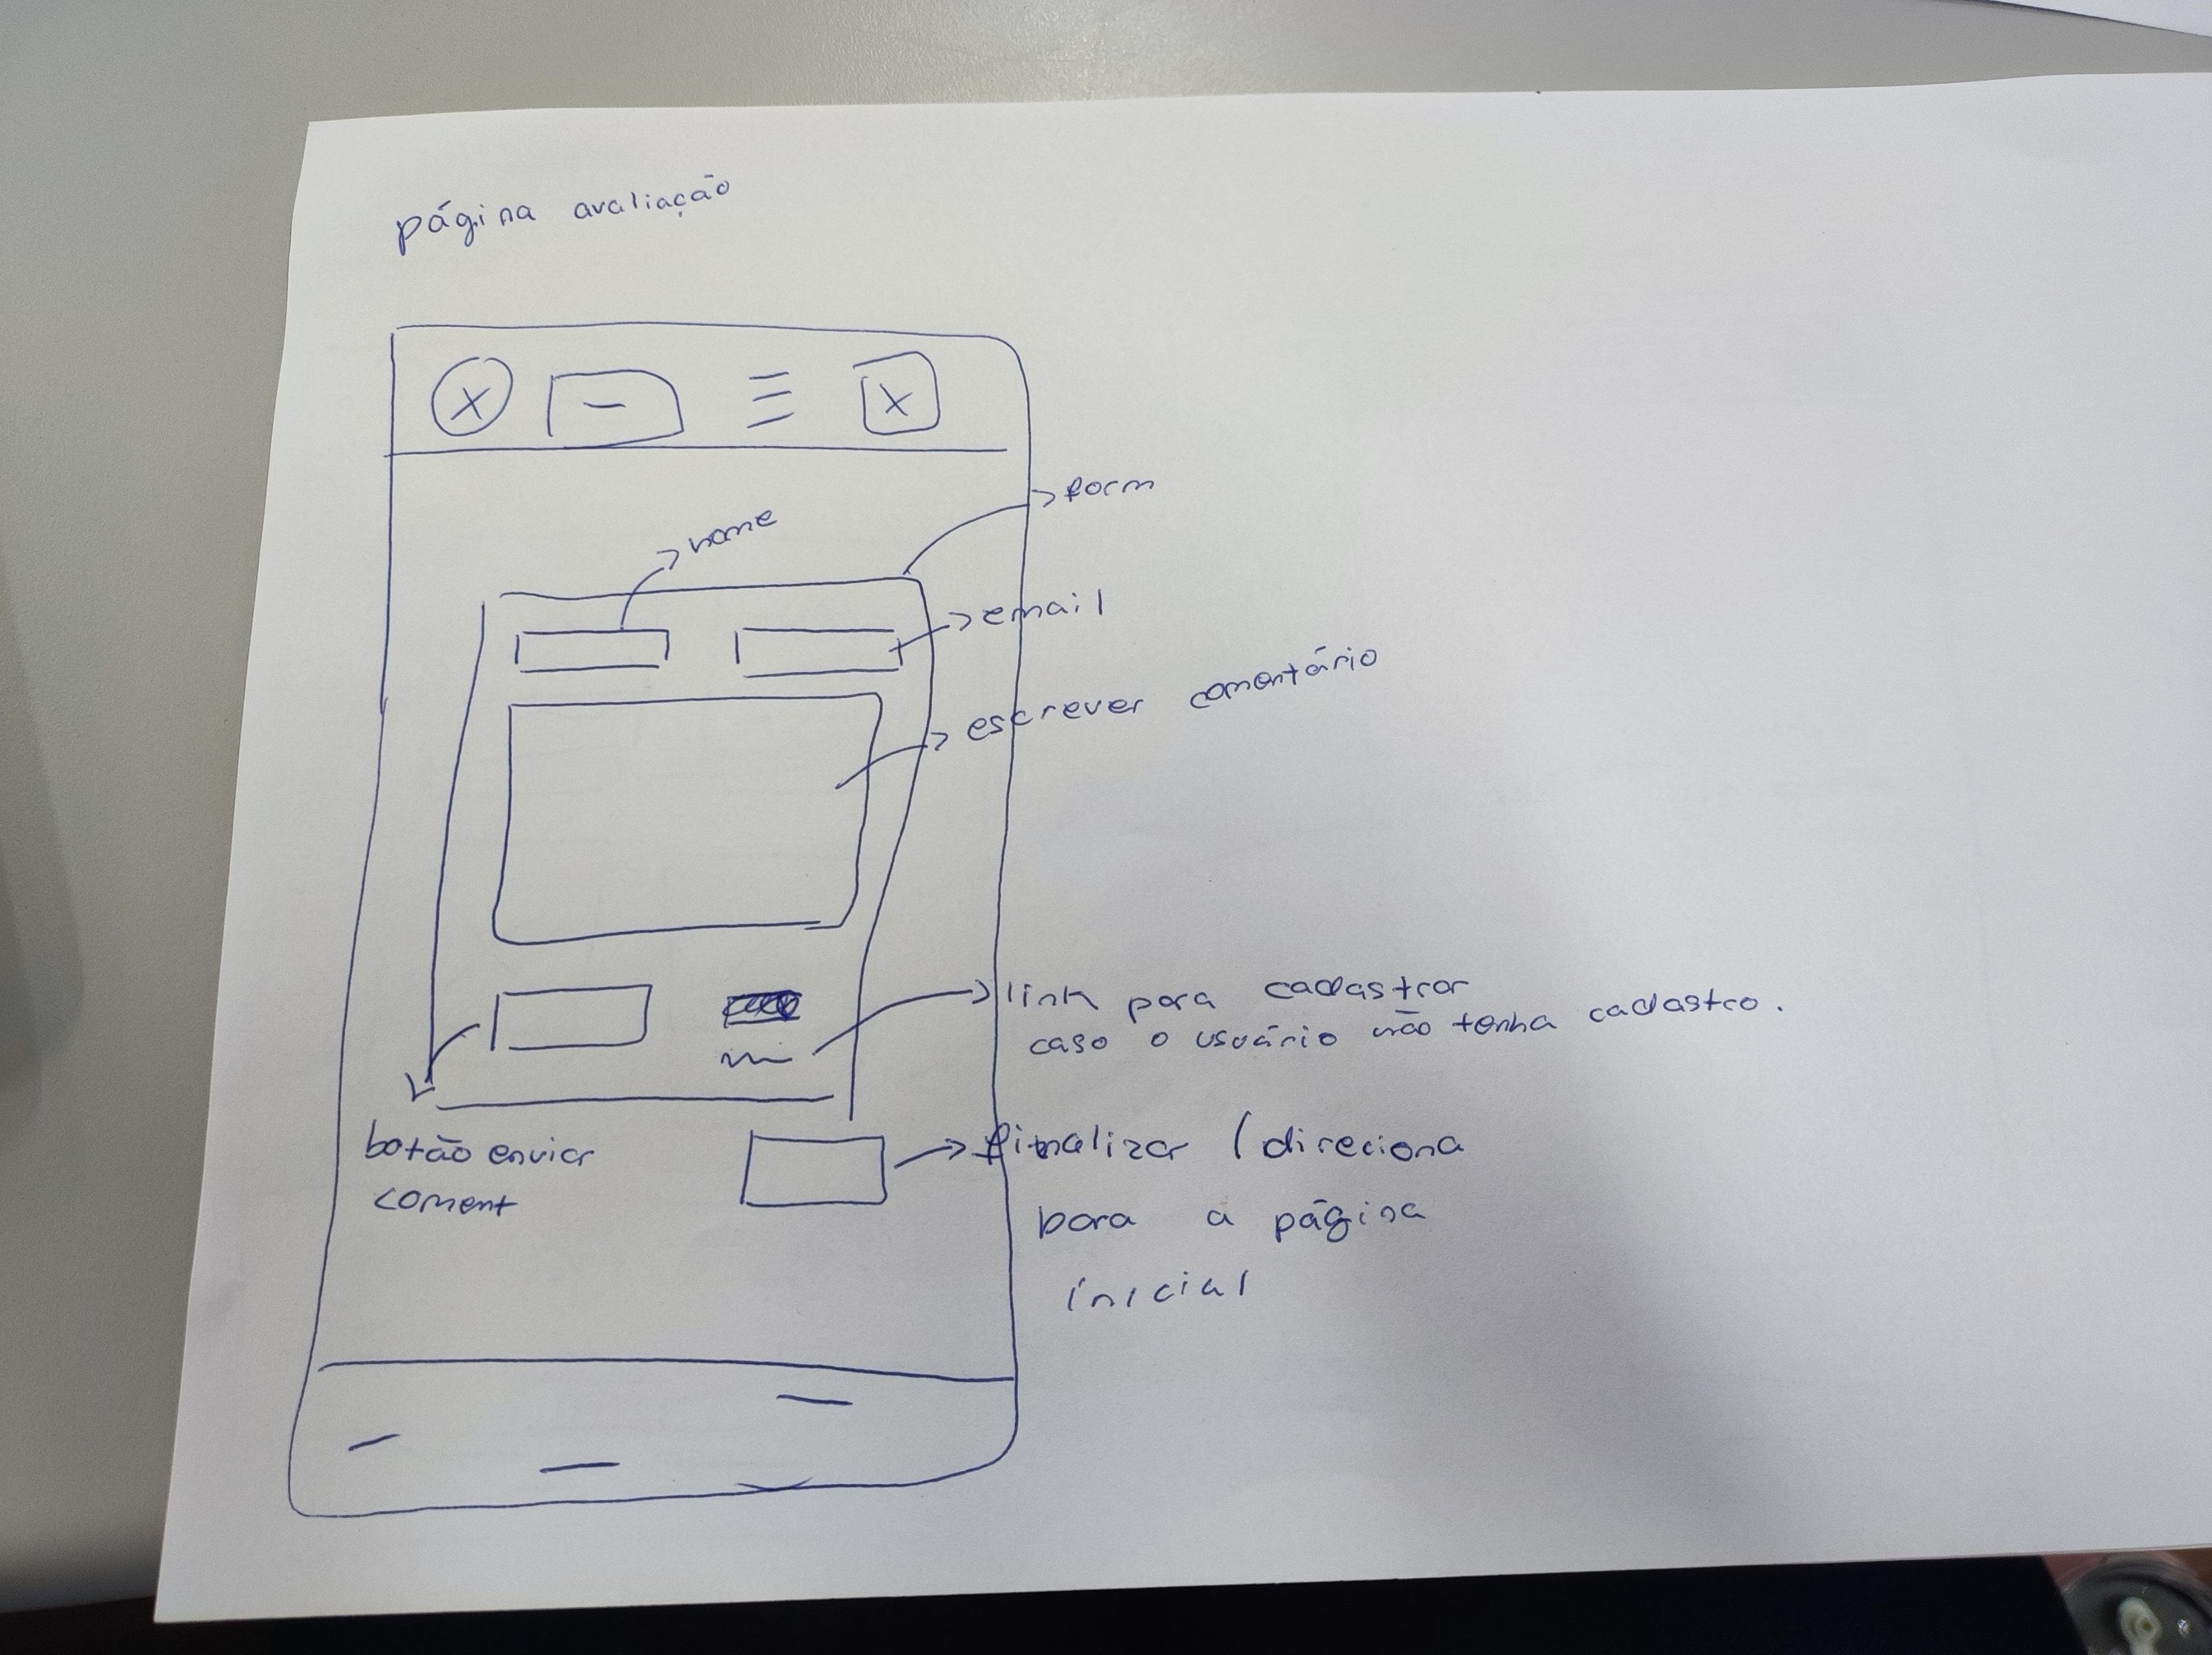 página avaliação
form
nome
email
escrever comentário
link para cadastrar
caso o usuário não tenha cadastro.
botão enviar
coment
finalizar (direciona
para a página
inicial